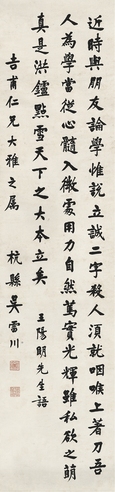 近時與朋友論學惟說立誠二字殺人須就咽喉上著刀吾
人為學當從心髓入微處用力自然篤實光輝雖私欲之萌
真是洪鑪點雪天下之大本立矣
王陽明先生語
吉甫仁兄大雅之屬
杭縣吳雷川